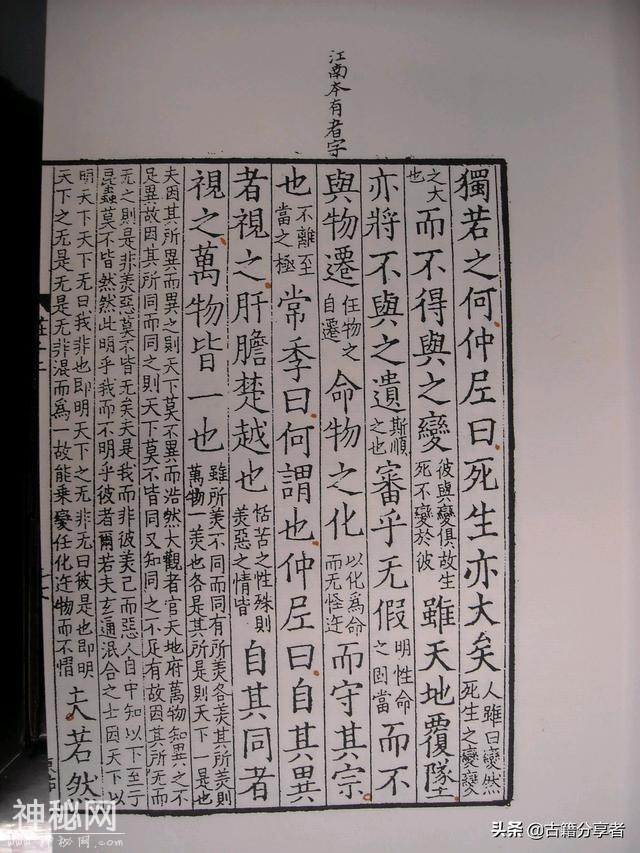 江南本有者字
獨若之何仲尼曰死生亦大矣人雖日變然死生之變變
之大也而不得與之變彼與變俱故生死不變於彼雖天地覆墜
亦將不與之遺斯順之也審乎无假明性命之固當而不
與物遷任物之自遷命物之化以化爲命而无怪迕而守其宗
也不離至當之極常季曰何謂也仲尼曰自其異
者視之肝膽楚越也恬苦之性殊則美惡之情背自其同者
視之萬物皆一也雖所美不同而同有所美各美其所美則萬物一美也各是其所是則天下一是也
夫因其所異而異之則天下莫不異而浩然大觀者官天地府萬物知異之不
足異故因其所同而同之則天下莫不皆同又知同之不足有故因其所无而
无之則是非美惡莫不皆无矣夫是我而非彼美己而惡人自中知以下至于
昆蟲莫不皆然然此明乎我而不明乎彼者爾若夫玄通泯合之士因天下以
明天下天下无曰我非也即明天下之无非无曰彼是也即明
天下之无是无是无非混而爲一故能乘變任化迕物而不慴夫若然
神秘网
头条 @古籍分享者